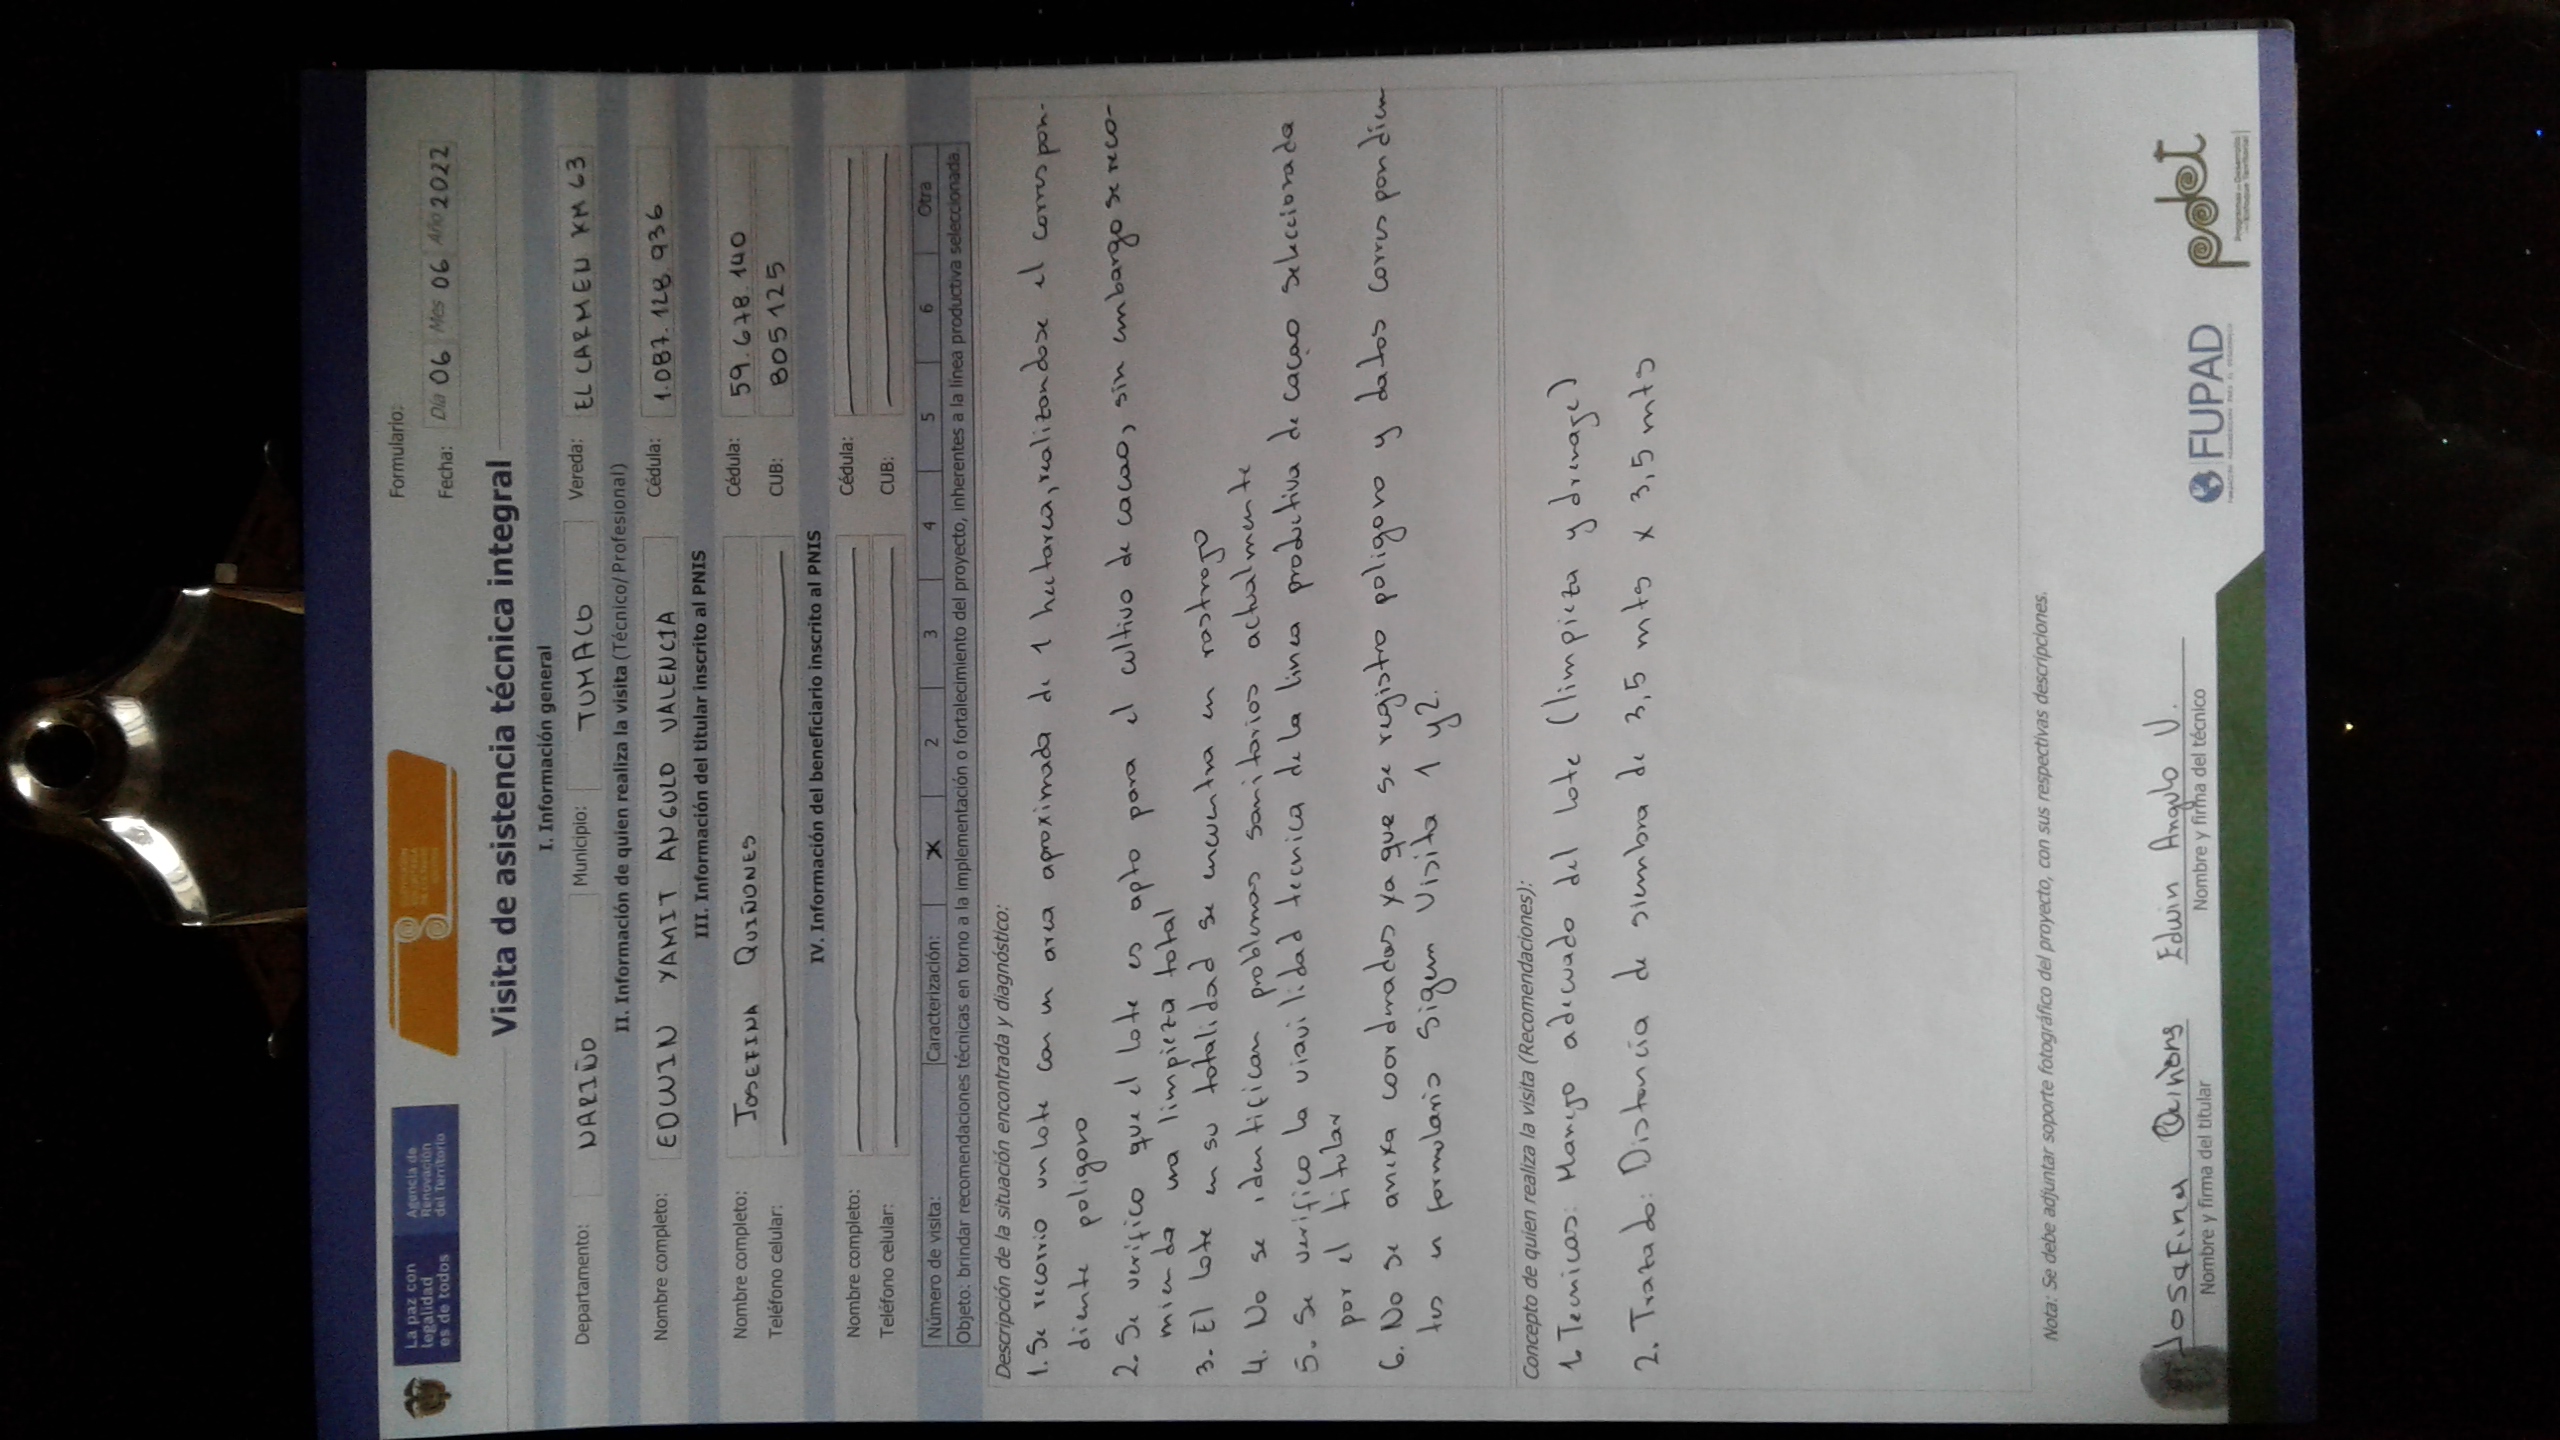 La paz con
legalidad
es de todos
Agencia de
Renovación
del Territorio
Formulario:
Fecha: Día 06 Mes 06 Año 2022
Visita de asistencia técnica integral
I. Información general
Departamento: NARIÑO Municipio: TUMACO Vereda: EL CARMEN KM 63
II. Información de quien realiza la visita (Técnico/Profesional)
Nombre completo: EDWIN YAMIT ANGULO VALENCIA Cédula: 1.087.128.936
III. Información del titular inscrito al PNIS
Nombre completo: JOSEFINA QUIÑONES Cédula: 59.678.140
Teléfono celular: CUB: 805125
IV. Información del beneficiario inscrito al PNIS
Nombre completo: Cédula:
Teléfono celular: CUB:
Número de visita: Caracterización: X 2 3 4 5 6 Otra
Objeto: brindar recomendaciones técnicas en torno a la implementación o fortalecimiento del proyecto, inherentes a la línea productiva seleccionada.
Descripción de la situación encontrada y diagnóstico:
1. Se recorrio un lote con un area aproximada de 1 hectarea, realizandose el correspon-
diente poligono
2. Se verifico que el lote es apto para el cultivo de cacao, sin embargo se reco-
mienda una limpieza total
3. El lote en su totalidad se encuentra en rastrojo
4. No se identifican problemas sanitarios actualmente
5. Se verifico la viavilidad tecnica de la linea productiva de cacao seleccionada
por el titular
6. No se anexa coordenadas ya que se registro poligono y datos correspondien
tes en formulario Sigem Visita 1 y 2.
Concepto de quien realiza la visita (Recomendaciones):
1. Tecnicas: Manejo adecuado del lote (limpieza y drenaje)
2. Trazado: Distancia de siembra de 3,5 mts x 3,5 mts
Nota: Se debe adjuntar soporte fotográfico del proyecto, con sus respectivas descripciones.
Josefina Quiñones Edwin Angulo V.
Nombre y firma del titular Nombre y firma del técnico
FUPAD
pdet
Programas de Desarrollo
con Enfoque Territorial